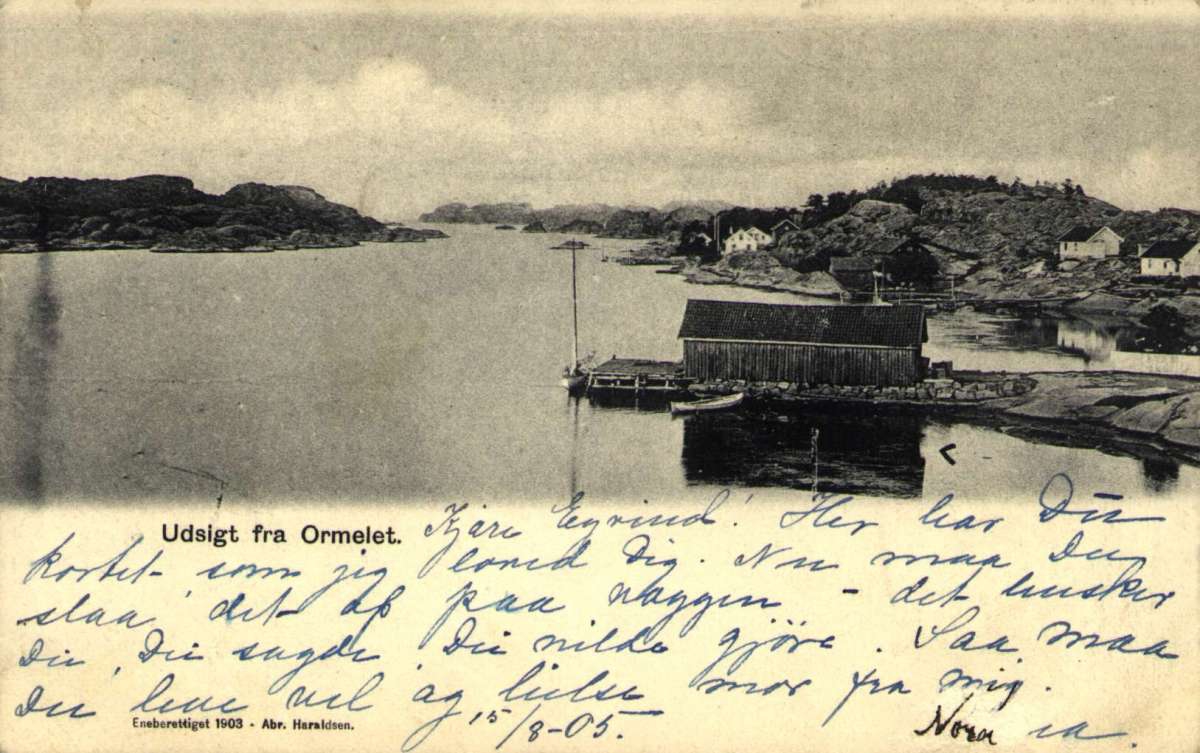 Udsigt fra Ormelet.
Kjære Eyvind! Her har Du
kortet som jeg loved Dig. Nu maa Du
slaa det op paa væggen - det husker
Du, Du sagde Du vilde gjöre. Saa maa
Du leve vel og hilse mor fra mig.
Eneberettiget 1903 · Abr. Haraldsen.
15/8-05.
Nora